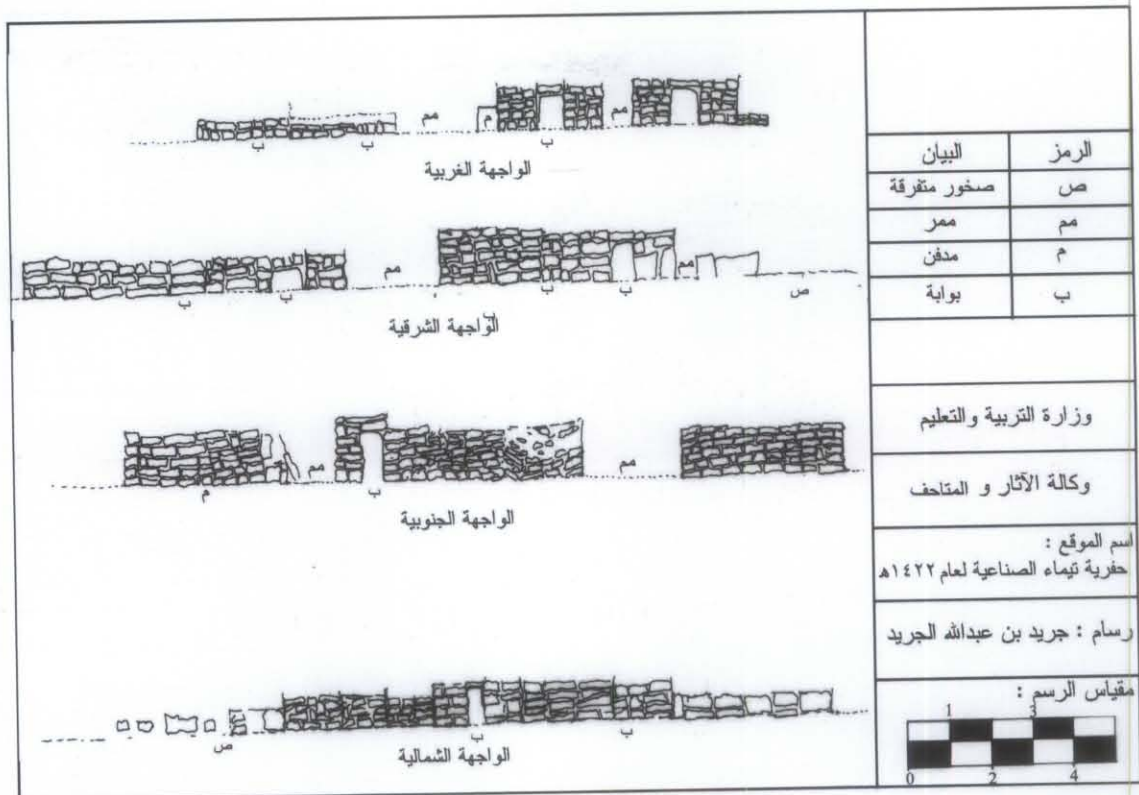 مم
م
مم
ب
ب
ب
الواجهة الغربية
مم
مم
ب
ب
ب
ب
ص
ب
الواجهة الشرقية
مم
مم
م
ب
الواجهة الجنوبية
ص
ب
ب
الواجهة الشمالية
الرمز البيان
ص صخور متفرقة
مم ممر
م مدفن
ب بوابة
وزارة التربية والتعليم
وكالة الآثار و المتاحف
اسم الموقع :
حفرية تيماء الصناعية لعام ١٤٢٢هـ
رسام : جريد بن عبدالله الجريد
مقياس الرسم :
1 3
0 2 4